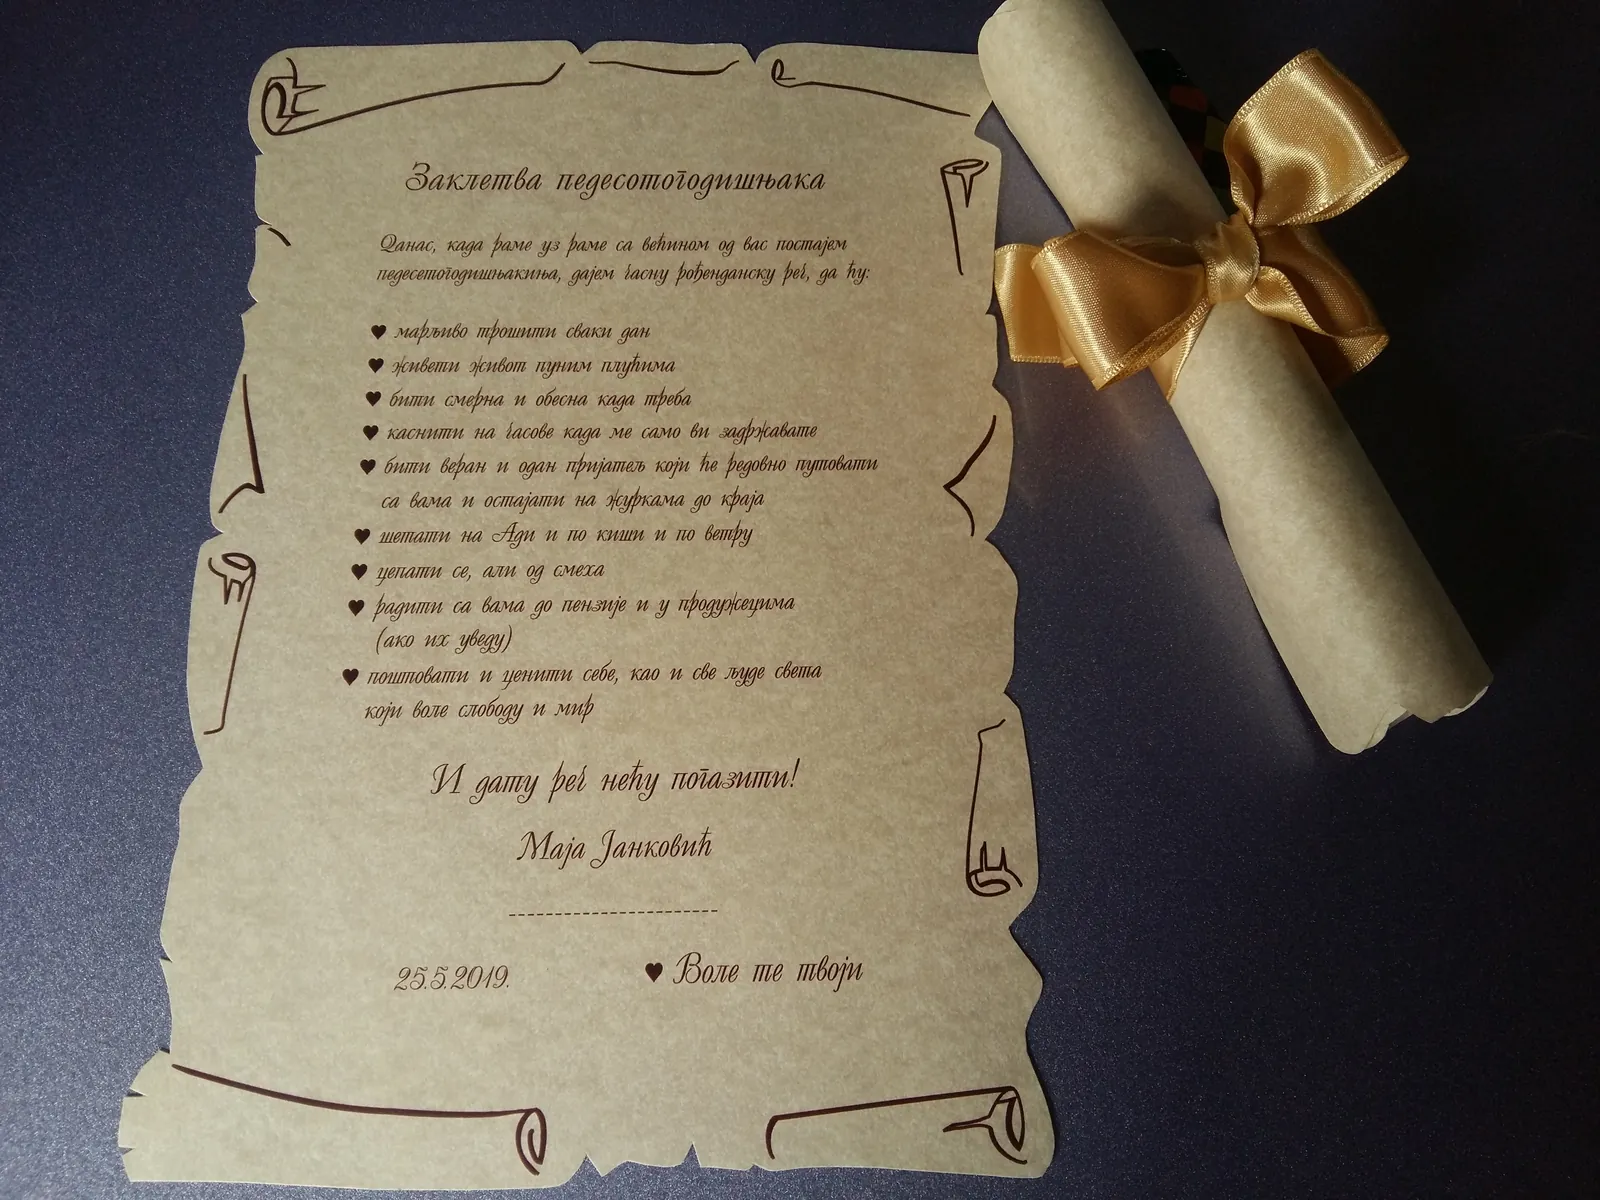 Заклетва педесотогодишњака
Данас, када раме уз раме са већином од вас постајем
педесетогодишњакиња, дајем часну рођенданску реч, да ћу:
♥ марљиво трошити сваки дан
♥ живети живот пуним плућима
♥ бити смерна и обесна када треба
♥ каснити на часове када ме само ви задржавате
♥ бити веран и одан пријатељ који ће редовно путовати
са вама и остајати на журкама до краја
♥ шетати на Ади и по киши и по ветру
♥ цепати се, али од смеха
♥ радити са вама до пензије и у продужецима
(ако их уведу)
♥ поштовати и ценити себе, као и све људе света
који воле слободу и мир
И дату реч нећу погазити!
Маја Јанковић
-----------------------
25.5.2019.
♥ Воле те твоји